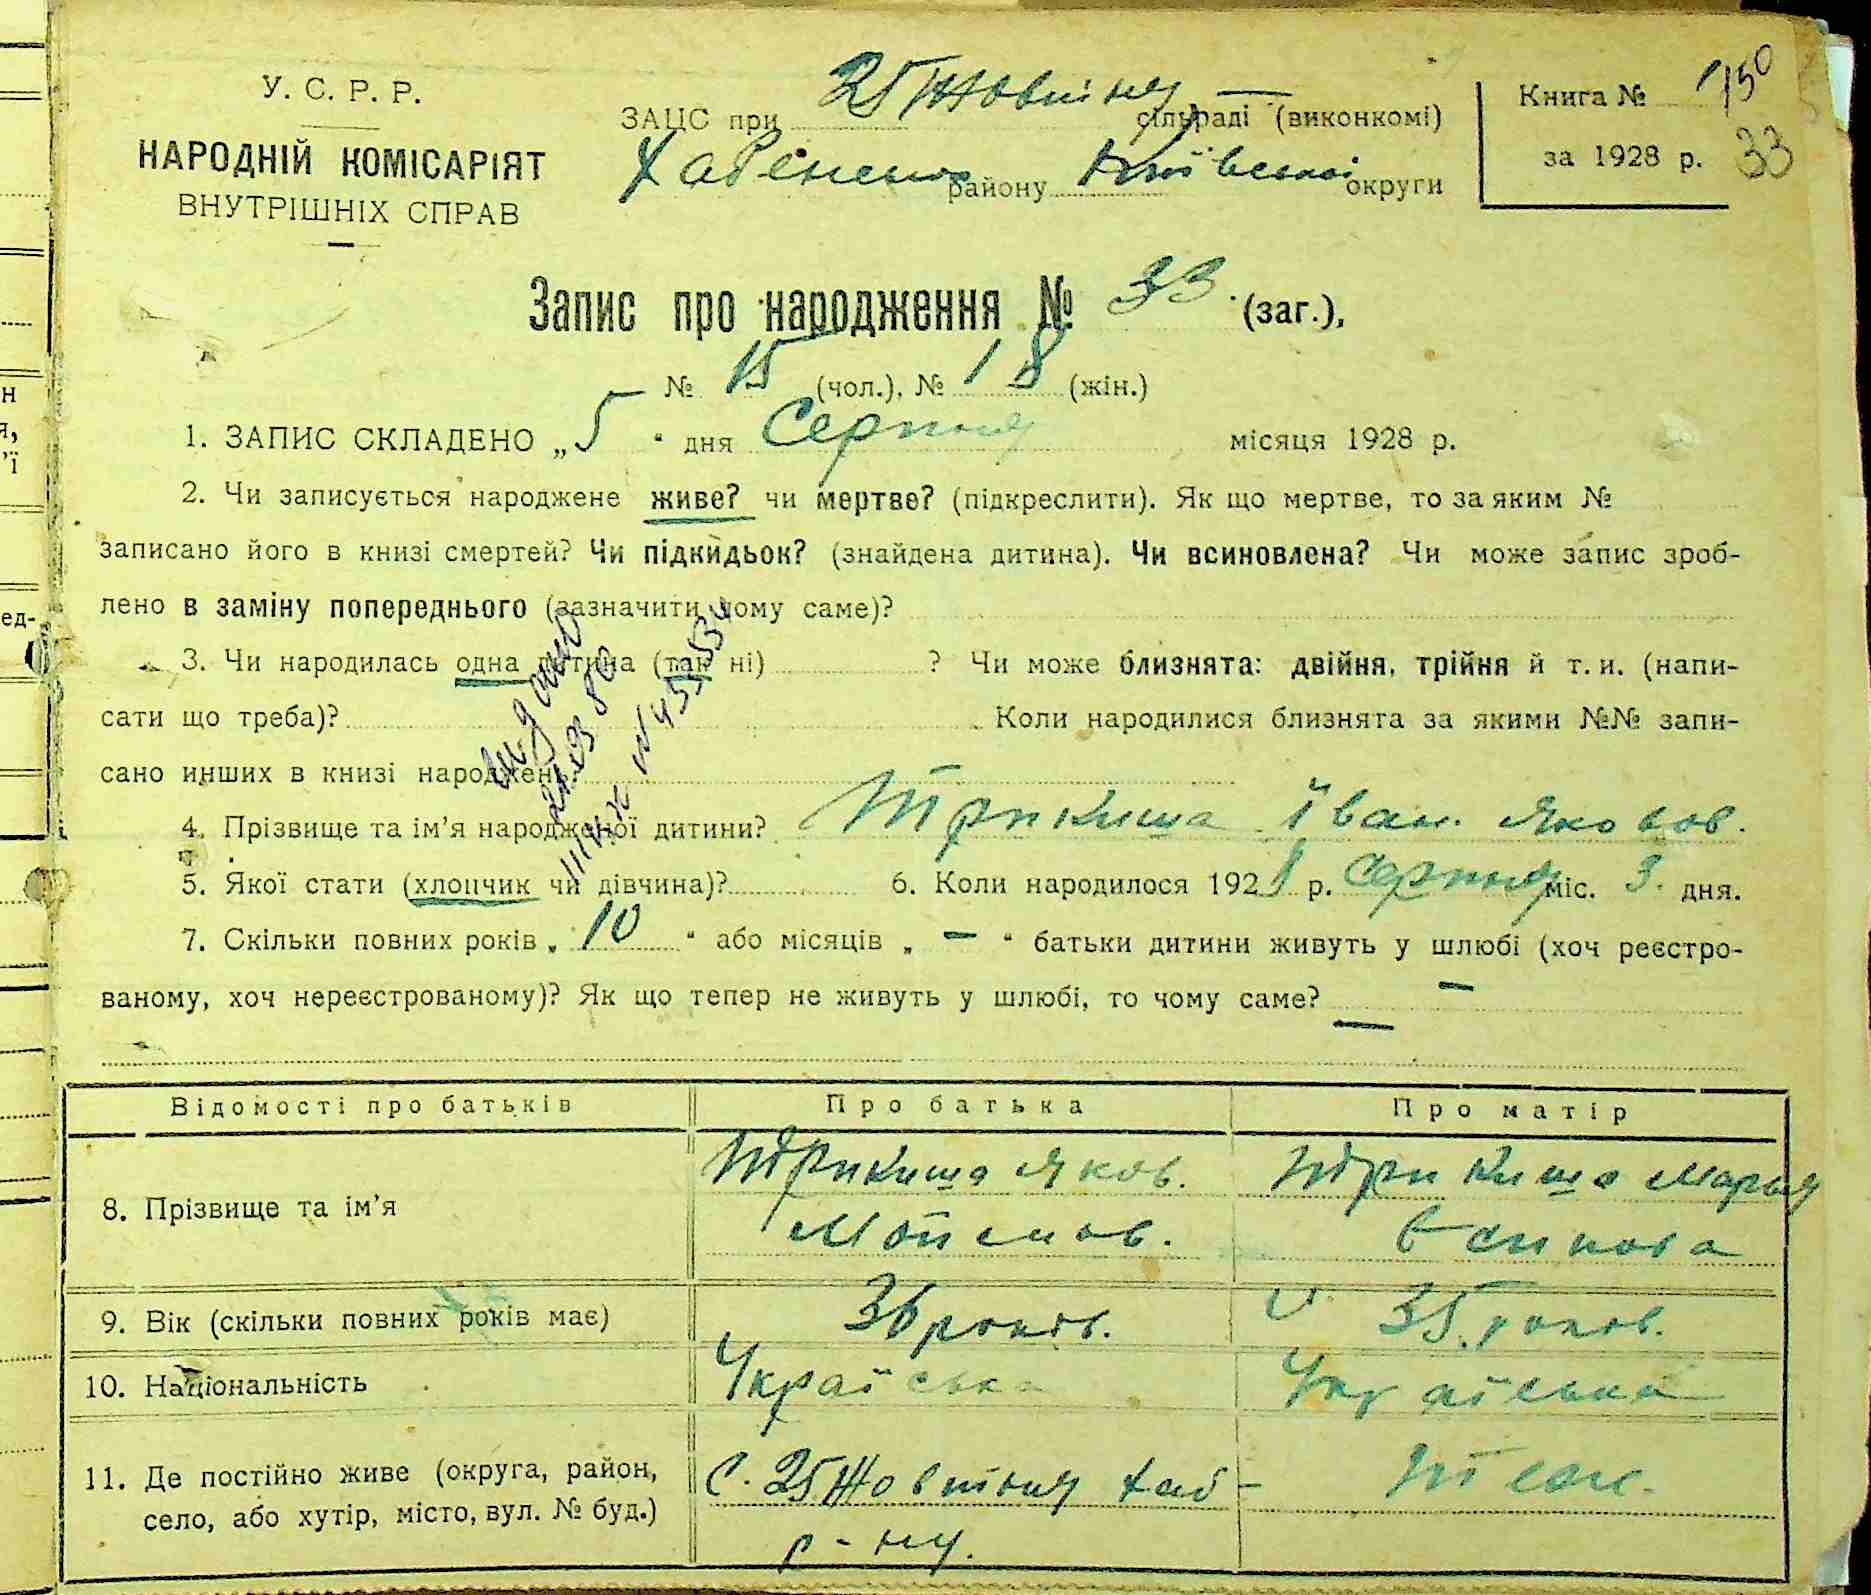 У. С. Р. Р.
НАРОДНІЙ КОМІСАРІЯТ
ВНУТРІШНІХ СПРАВ
ЗАЦС при 25 Жовтня сільраді (виконкомі)
району Київської округи
Книга № 150
за 1928 р. 33
Запис про народження № 33 (заг.),
№ 15 (чол.), № 18 (жін.)
1. ЗАПИС СКЛАДЕНО „ 5 “ дня Серпня місяця 1928 р.
2. Чи записується народжене живе? чи мертве? (підкреслити). Як що мертве, то за яким №
записано його в книзі смертей? Чи підкидьок? (знайдена дитина). Чи всиновлена? Чи може запис зроб-
лено в заміну попереднього (зазначити чому саме)?
3. Чи народилась одна дитина (так ні) ? Чи може близнята: двійня, трійня й т. и. (напи-
сати що треба)? Коли народилися близнята за якими №№ запи-
сано инших в книзі народжень
4. Прізвище та ім’я народженої дитини? Трикиша Іван Яковов.
5. Якої стати (хлопчик чи дівчина)? 6. Коли народилося 1928 р. Серпня міс. 3. дня.
7. Скільки повних років „ 10 “ або місяців „ — “ батьки дитини живуть у шлюбі (хоч реєстро-
ваному, хоч нереєстрованому)? Як що тепер не живуть у шлюбі, то чому саме? —
Відомості про батьків Про батька Про матір
8. Прізвище та ім’я
Трикиша Яков.
Мойсеов.
Трикиша Марья
Есипова
9. Вік (скільки повних років має) 36 років. 35 років.
10. Національність Українська Українська
11. Де постійно живе (округа, район,
село, або хутір, місто, вул. № буд.)
С. 25 Жовтня Хаб-
р-ну.
Теж.